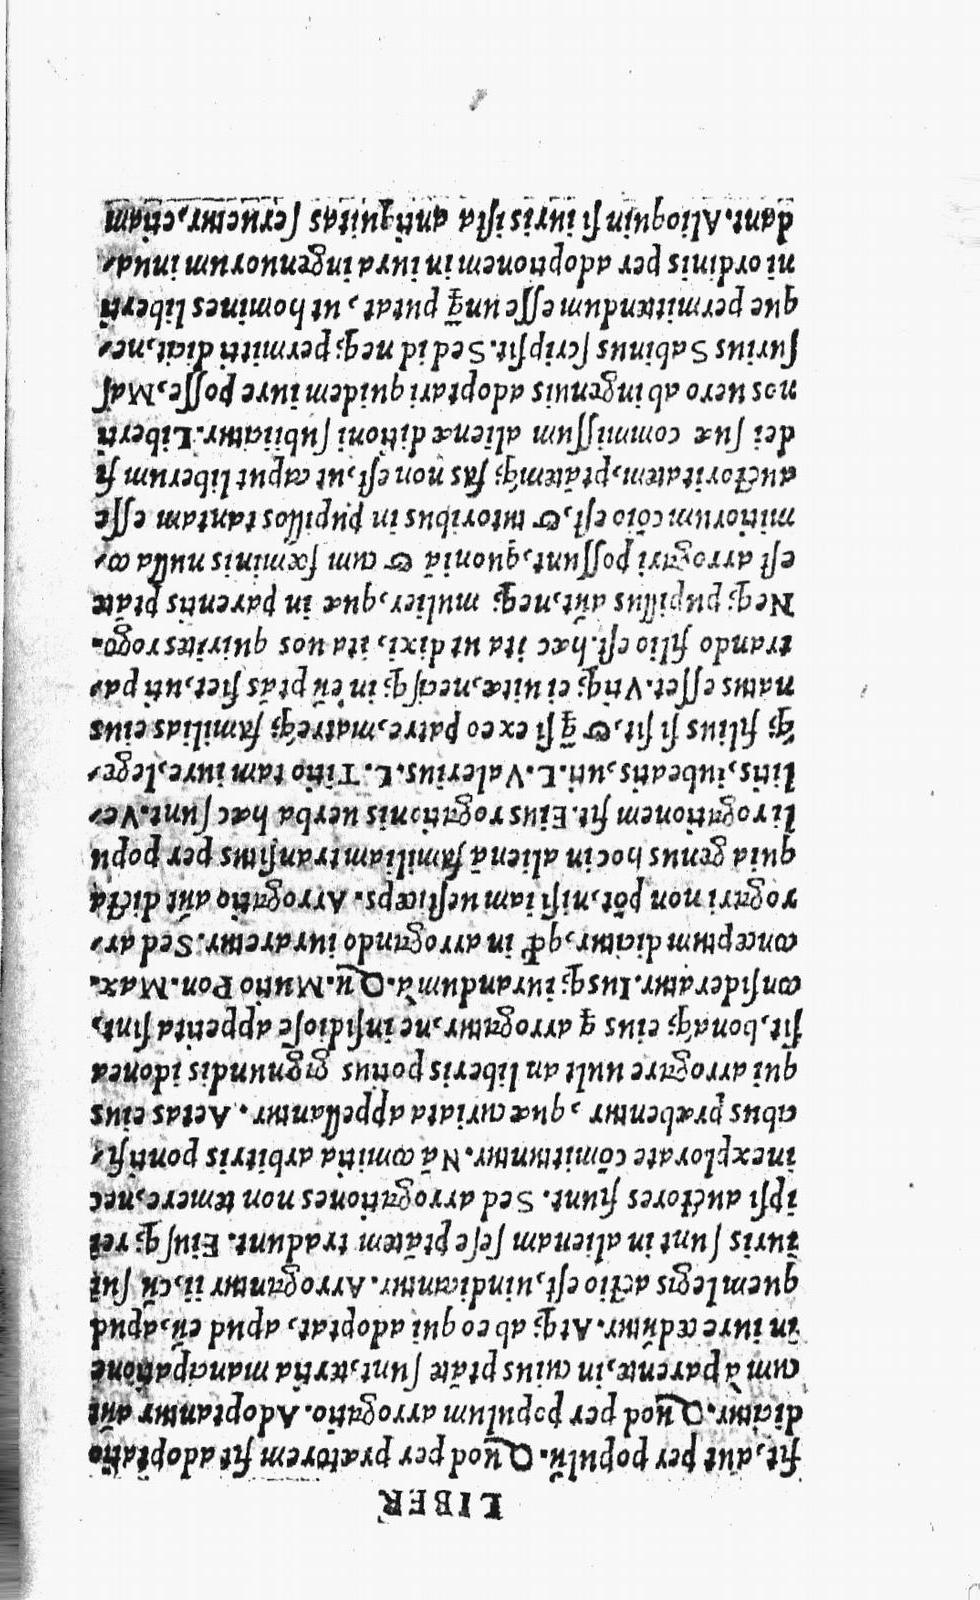 LIBER
fit, aūt per populū. Quod per prætorem fit adoptatio
dicitur. Quod per populum arrogatio. Adoptantur aūt
cum à parente, in cuius ptāte sunt, tertia mancipatione
in iure cedūtur. Atq; ab eo qui adoptat, apud eū, apud
quem legis actio est, uindicantur. Arrogantur ii, cū sui
iuris sunt in alienam sese ptātem tradunt. Eiusq; rei
ipsi auctores fiunt. Sed arrogationes non temere, nec
inexplorate cōmittuntur. Nā comitia arbitris pontifi⸗
cibus præbentur, quæ curiata appellantur. Aetas eius
qui arrogare uult an liberis potius gignundis idonea
sit, bonaq; eius q̄ arrogatur, ne insidiose appetita sint,
consideratur. Iusq; iurandum à. Qu. Mutio Pon. Max.
conceptum dicitur, qđ in arrogando iuraretur. Sed ar⸗
rogari non pōt, nisi iam uesticeps. Arrogatio aūt dicta
quia genus hoc in alienā familiam transitus per popu
li rogationem fit. Eius rogationis uerba hæc sunt. Ve⸗
litis, iubeatis, uti. L. Valerius. L. Titio tam iure, lege⸗
q; filius si sit, & q̄ si ex eo patre, matreq; familias eius
natus esset. Vtiq; ei uitæ, necisq; in eū ptās siet, uti pa⸗
trando filio est. hæc ita ut dixi, ita uos quirites rogo.
Neq; pupillus aūt, neq; mulier, quæ in parentis ptāte
est arrogari possunt, quoniā & cum fæminis nulla co⸗
mitiorum cōio est, & tutoribus in pupillos tantam esse
auctoritatem, ptātemq; fas non est, ut caput liberum fi
dei suæ commissum alienæ ditioni subiiciatur. Liberti
nos uero ab ingenuis adoptari quidem iure posse, Mas
surius Sabinus scripsit. Sed id neq; permitti dicit, ne⸗
que permittendum esse unq̄ putat, ut homines liberti
ni ordinis per adoptionem in iura ingenuorum inua⸗
dant. Alioquin si iuris ista antiquitas seruetur, etiam